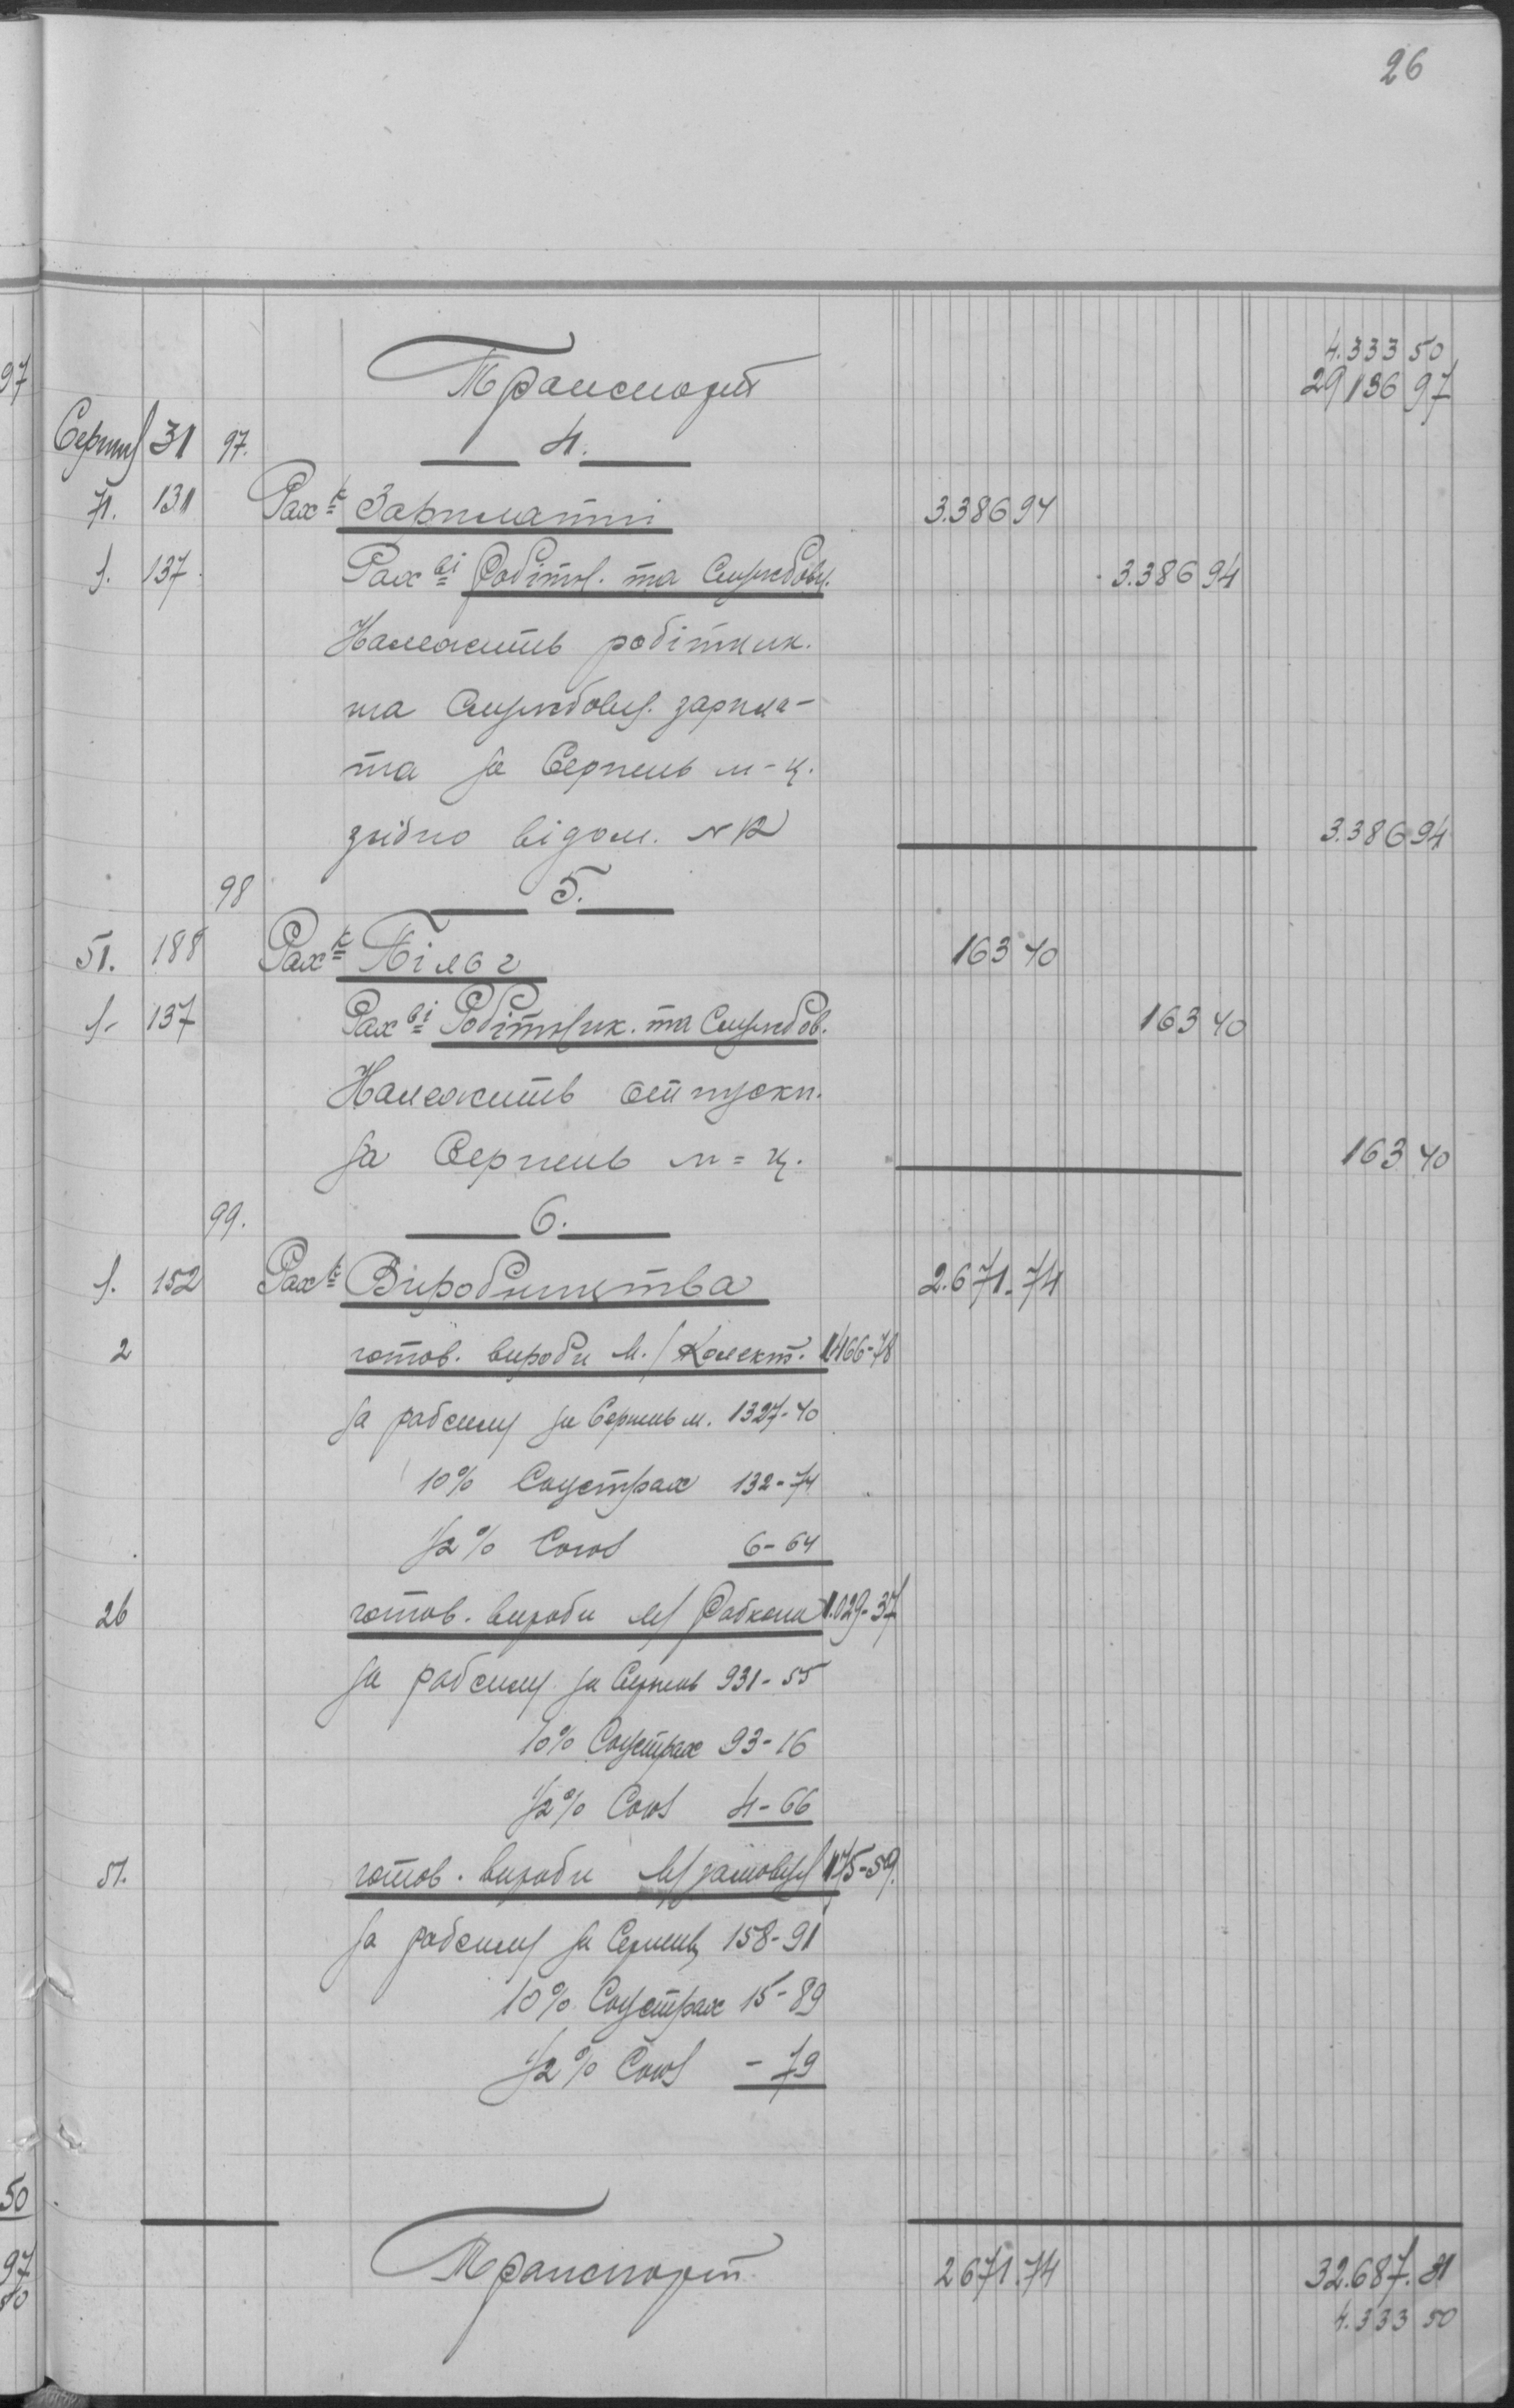 26
4.333 50
Транспорт 29 136 97
Серпня 31 97. 4.
71. 131 Рах-к Зарплатні 3.386 94
1. 137. Рах-ві Робітн. та Службовц. 3.386 94
Належить робітник.
та Службовц. зарпла-
та за Серпень м-ц.
згідно відом. N 12 3.386 94
98 5.
51. 188 Рах-к Пільг 163 40
1. 137 Рах-ві Робітник. та Службов. 163 40
Належить отпускн.
за Серпень м=ц. 163 40
99. 6.
1. 152 Рах-к Виробництва 2.671.74
2 готов. вироби М./Колект. 1466-78
за рабсилу за Серпень м. 1327-40
10% Соцстрах 132-74
1/2% Союз 6-64
26 готов. вироби М/ Рабкоп 1.029-37
за рабсилу за Серпень 931-55
10% Соцстрах 93-16
1/2% Союз 4-66
51. готов. вироби М/ замовц 175-59.
за рабсилу за Серпень 158-91
10% Соцстрах 15-89
1/2% Союз -79
Транспорт 2671.74 32.687.31
4.333 50